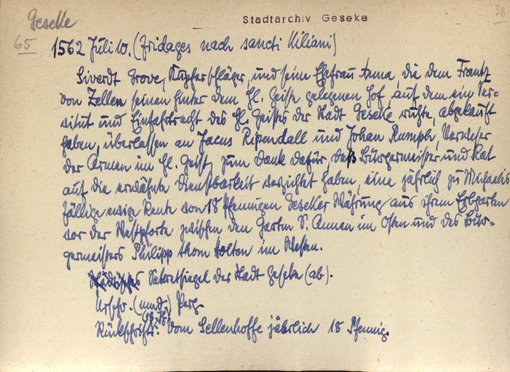 Geseke
Stadtarchiv Geseke
28
65
1562 Juli 10. (fridages nach sancti Kiliani)
Siverdt Grove, Kupferschläger, und seine Ehefrau Anna die dem Frantz
von Zellen seinen hinter dem Hl. Geiste gelegenen Hof auf dem ein Ser-
vitut und Einfahrtrecht des Hl. Geistes der Stadt Geseke ruhte, abgekauft
haben, überlassen an Jacus und Johan Rumph, Verweser
der Armen im Hl. Geist zum Dank dafür daß Bürgermeister und Rat
auf die erwähnte Dienstbarkeit verzichtet haben, eine jährlich zu Michaelis
fällige ewige Rente von 18 Pfennigen Geseker Währung aus ihrem Erbgarten
vor der Westpforte zwischen den Garten S. Annen im Osten und des Bür-
germeisters Philipp thom Holten im Westen.
Sekretsiegel der Stadt Geseke (ab).
Urschr. (mnd.) Perg.
Rückschrift: Vom Sellenhoffe jährlich 18 Pfennig.